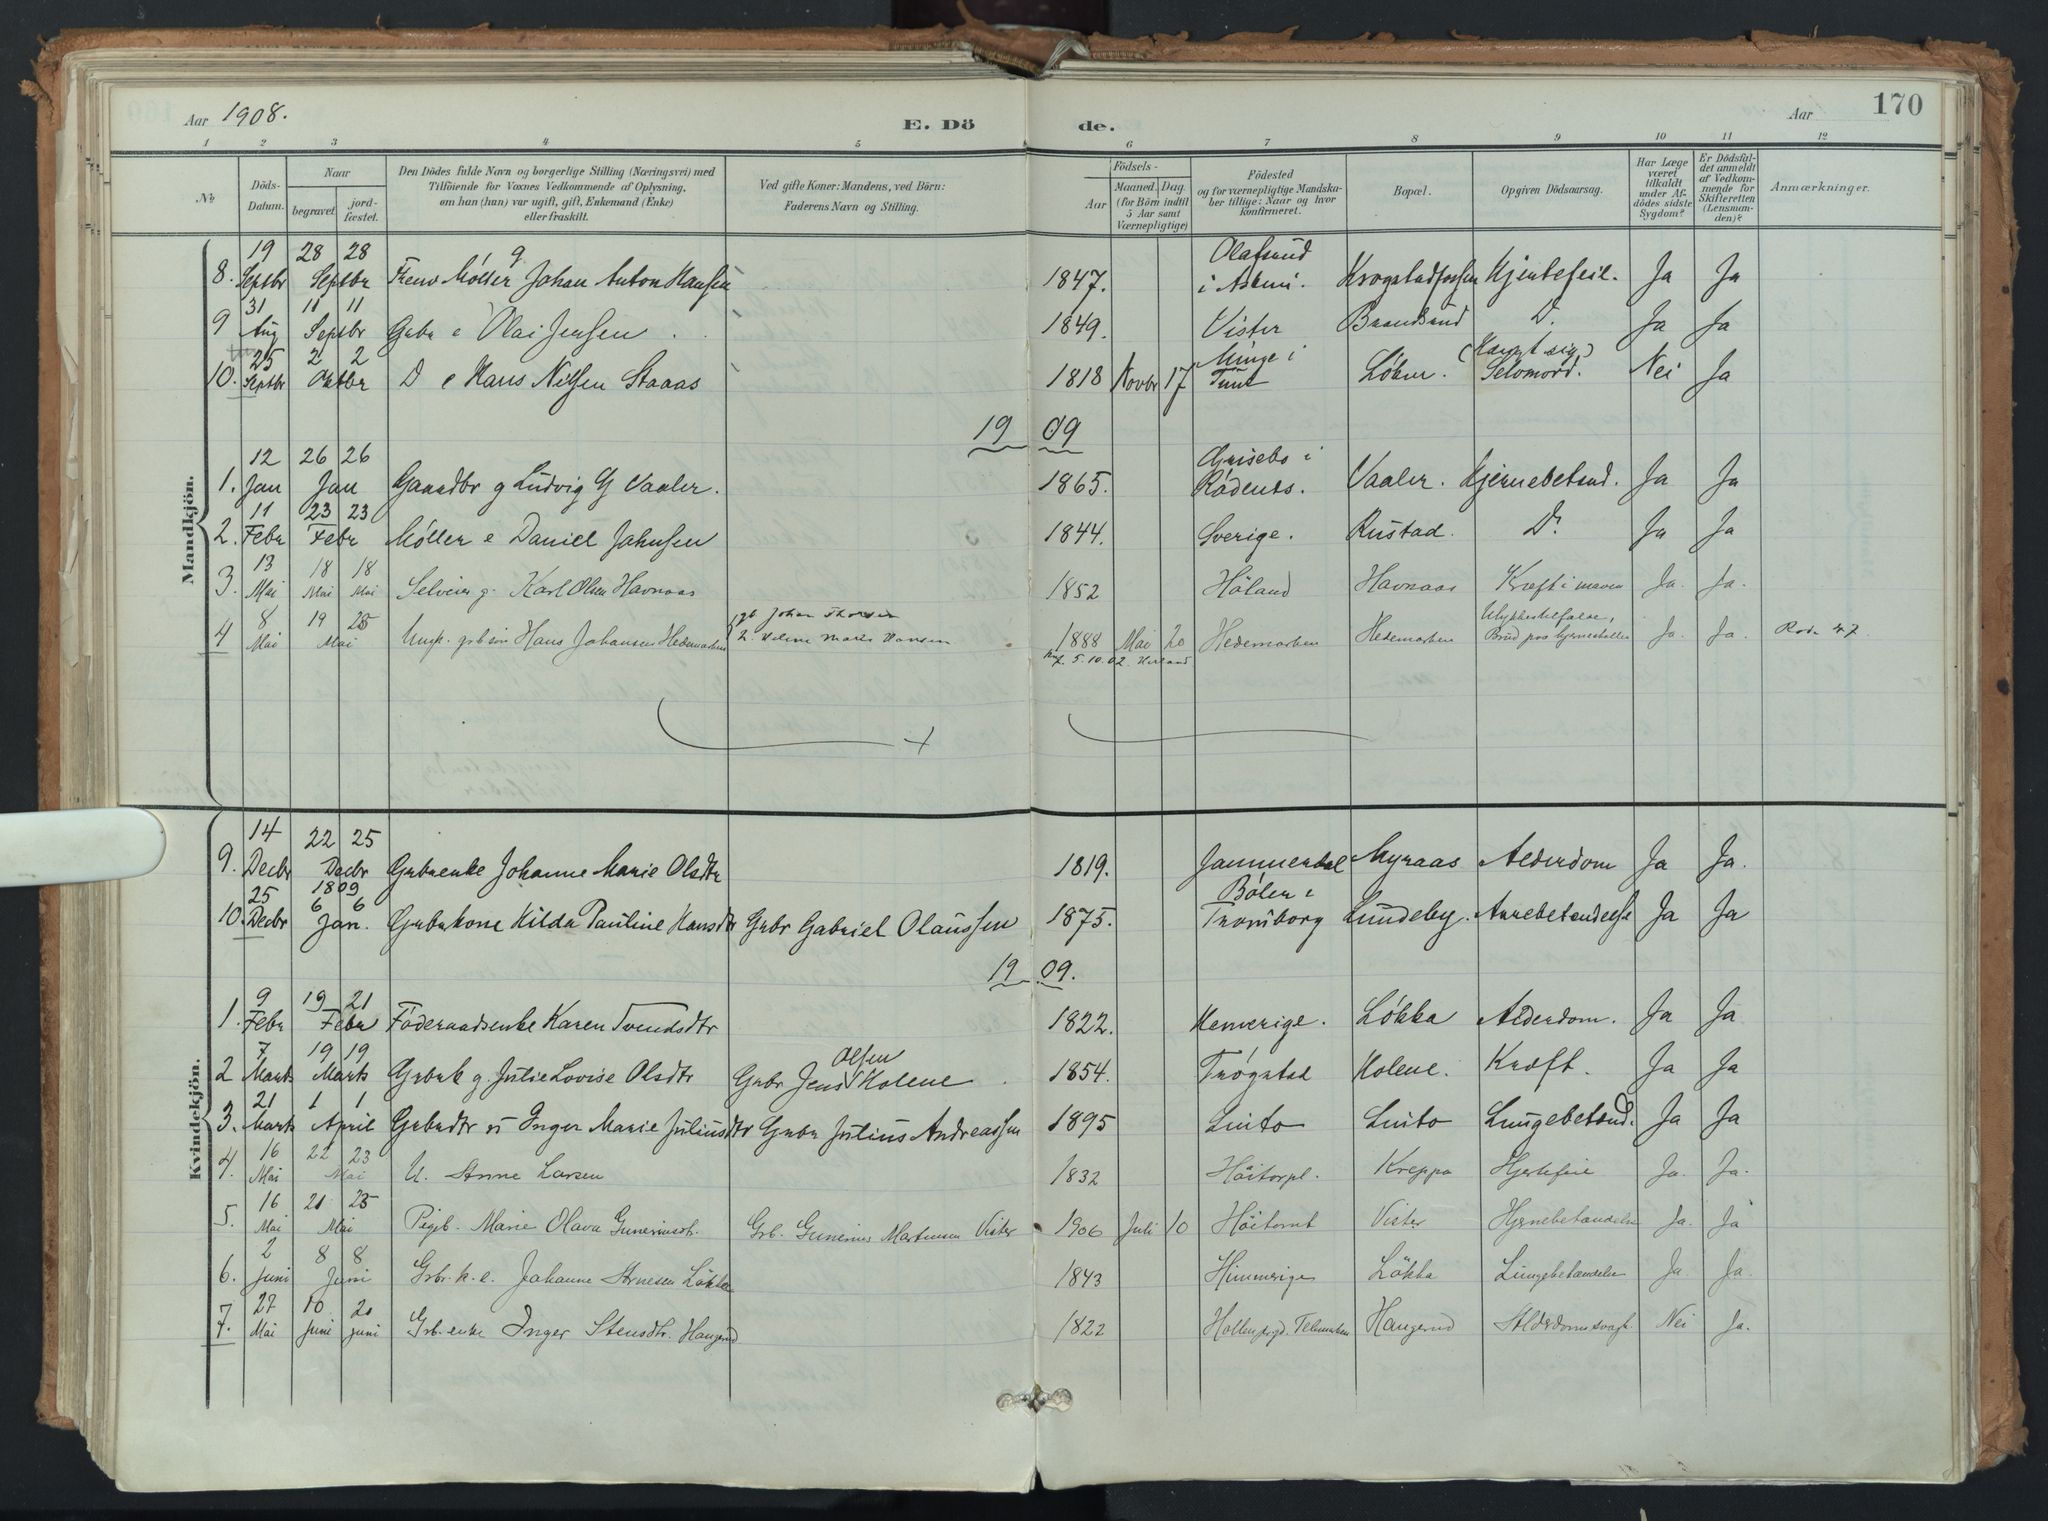 Aar 1908.
E. Dö de.
Aar
170
1 2 3 4 5 6 7 8 9 10 11 12
No
Döds-Datum.
Naar
begravet.
jordfæstet.
Den Dödes fulde Navn og borgerlige Stilling (Næringsvei) med
Tilföiende for Voxnes Vedkommende af Oplysning,
om han (hun) var ugift, gift, Enkemand (Enke)
eller fraskilt.
Ved gifte Koner: Mandens, ved Börn:
Faderens Navn og Stilling.
Födsels-
Aar
Maaned. Dag.
(for Börn indtil
5 Aar samt
Værnepligtige)
Födested
og for værnepligtige Mandskaber tillige: Naar og hvor
konfirmeret.
Bopæl.
Opgiven Dödsaarsag.
Har Læge
været
tilkaldt
under Afdödes sidste
Sygdom?
Er Dödsfaldet anmeldt
af Vedkommende for
Skifteretten
(Lensmanden)?
Anmærkninger.
Mandkjön.
8. 19 Septbr 28 28 Septbr g Møller Johan Anton Hansen 1847. Krogstadfossen Hjertefeil. Ja Ja
9 31 Aug 11 11 Septbr Gbr e Olai Jensen 1849. Vister Brandsund D. Ja Ja
10. 25 Septbr 2 2 Oktbr D e Hans Nilsen Staaas 1818 Novbr 17 Minge i Tune Løken. (Hængt sig) Selvmord. Nei Ja
19 09
1. 12 Jan 26 26 Jan Gaardbr g Ludvig G Vaaler. 1865. Grisebo i Rødenes. Vaaler. Hjernebetænd. Ja Ja
2. 11 Febr 23 23 Febr Møller e Daniel Johnsen 1844. Sverige. Rustad. Do Ja Ja
3. 13 Mai 18 18 Mai Mai Selveier g. Karl Olsen Havnaas 1852 Höland Havnaas Kræft i maven Ja. Ja.
4 8 Mai 19 25 Mai Ungk. grbsön Hans Johansen Hedemarken gb Johan Thorsen 1888 Mai 20 Hedemarken Hedemarken Ulykkestilfælde, Brud paa hjerneskallen Ja. Ja. Rode 47
2. Helene Marie Hansen
5.10.02.
Kvindekjön.
9. 14 Decbr 22 25 Decbr Gbrenke Johanne Marie Olsdtr 1819. Jammerdal Myraas Alderdom Ja Ja.
10. 25 Decbr 1809 6 6 Jan. Gbrkone Hilda Pauline Hansdtr Gbr Gabriel Olaussen 1875. Bølen i Tromborg Lundeby. Ja Ja
19 09.
1. 9 Febr 19 21 Febr Føderaadsenke Karen Svendsdtr 1822. Løkka Alderdom. Ja Ja
2 7 Marts 19 19 Marts Gbrk g. Julie Lovise Olsdtr Gbr Jens Olsen Holene 1854. Trøgstad Holene. Kræft. Ja Ja
3. 21 Marts 1 1 April Gbrdtr Inger Marie Juliusdtr Gbr Julius Andreassen 1895 Linto Linto Lungebetænd. Ja Ja
4. 16 Mai 22 23 Mai U. Anne Larsen 1832 Höitorpl. Kreppa Hjertefeil Ja. Ja.
5. 16 Mai 21 25 Mai Pigeb. Marie Olava Guneriusdtr. Grb. Gunerius Martinsen Vister 1906 Juli 10 Höitomt Vister Hjernebetændelse Ja. Ja
6. 2 Juni 8 8 Juni Grbr.k.e. Johanne Arnesen Lökka 1843 Himmerige Lökka Lungebetændelse Ja Ja.
7. 27 Mai 10 20 Juni Juni Grb.enke Inger Stensdtr. Haugerud 1822 Hollen prgd. Telemarken Haugerud Alderdomssvagh. Nei Ja.